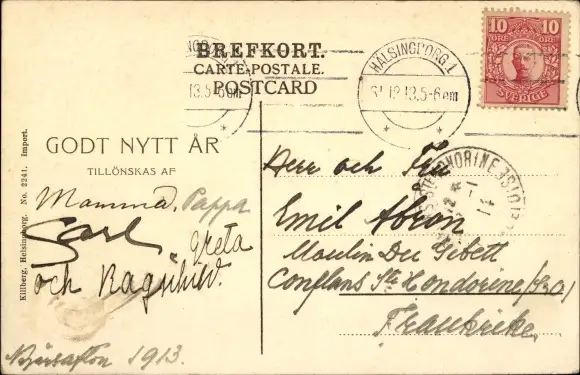 BREFKORT.
CARTE-POSTALE.
POSTCARD
HÄLSINGBORG 1
31.12.13.5-6 em
13.5-6 em
10 10
ÖRE ÖRE
SVERIGE
GODT NYTT ÅR
TILLÖNSKAS AF
Mamma, Pappa
Greta
och Ragnhild.
Nyårsafton 1913.
Killberg, Helsingborg. No. 2241. Import.
Herr och Fru
Emil Abron
Moulin Du Gibett
Conflans Ste Hondorine
Frankrike.